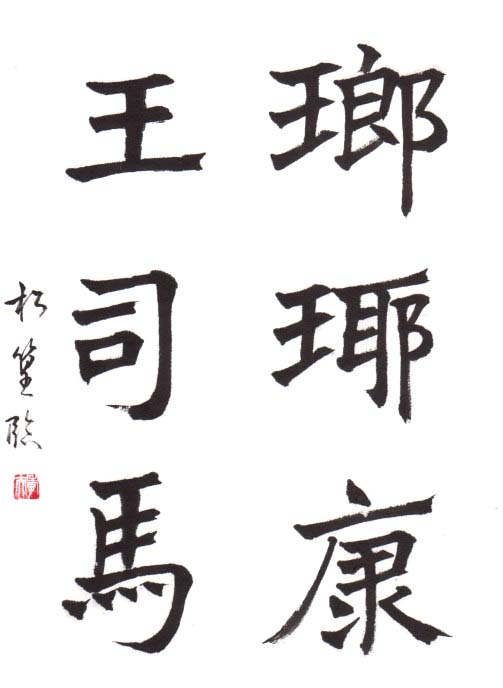 瑯琊康
王司馬
松篁臨